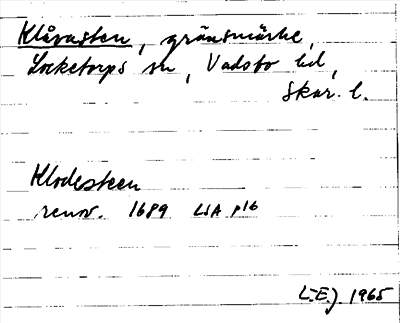 Klåvasten, gränsmärke,
Locketorps sn, Vadsbo hd,
Skar. l.
Klodesteen
renov. 1689 LSA p16
L-E.J. 1965